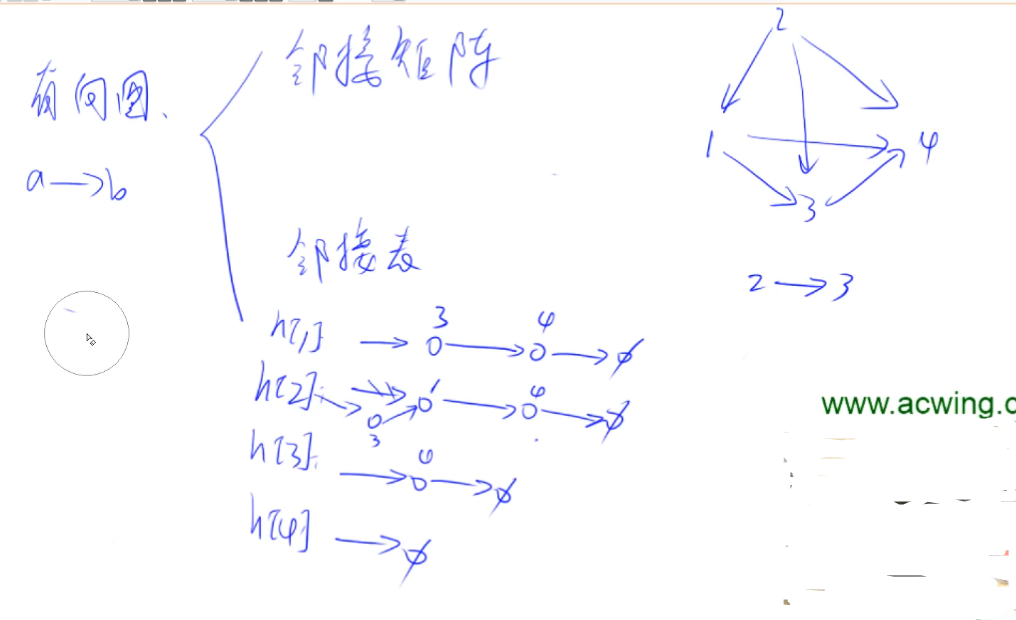 有向图、
a→b
邻接矩阵
邻接表
h[1] → 3 → 4 → ∅
h[2]: → 3 → 1 → 4 → ∅
h[3]: → 4 → ∅
h[4] → ∅
2
1
4
3
2→3
www.acwing.c